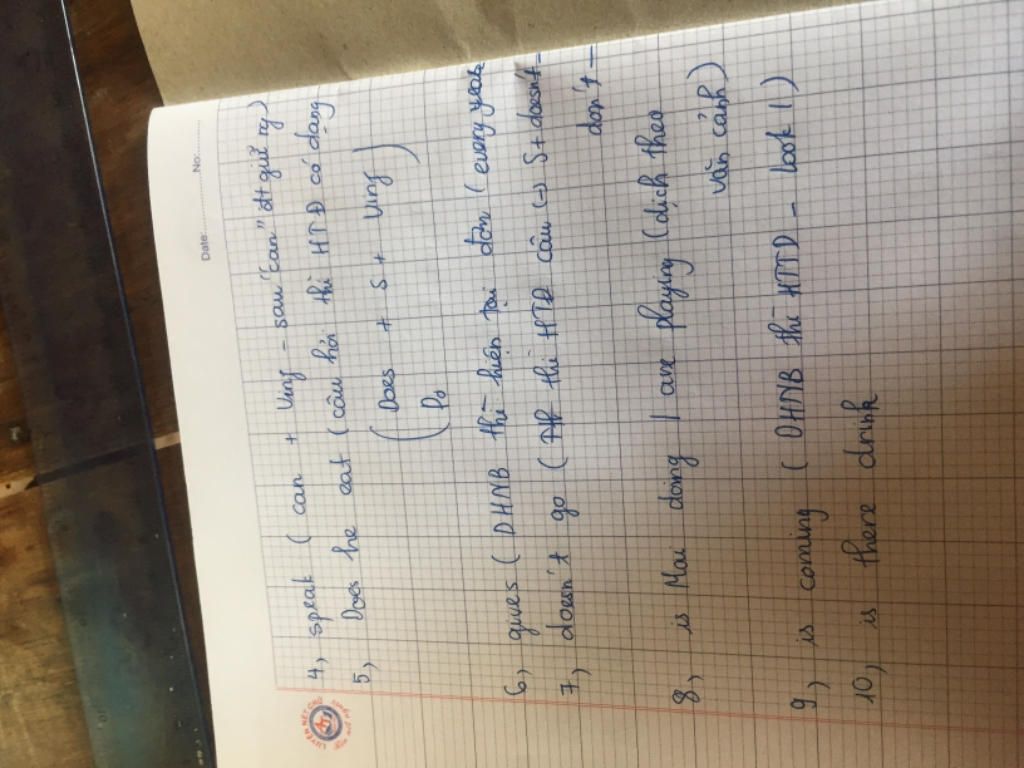 Date: ............... No: ...............
4, speak ( can + Ving - sau "can" đt giữ ng )
5, Does he eat ( câu hỏi thì HTĐ có dạng
( Does + S + Ving )
Do
6, gives ( DHNB thì hiện tại đơn ( every year
7, doesn't go ( thì HTĐ câu (-) S + doesn't -
don't -
8, is Mai doing / are playing ( dịch theo
văn cảnh )
9, is coming ( DHNB thì HTTD - look ! )
10, is there drink
LUYỆN NÉT CHỮ